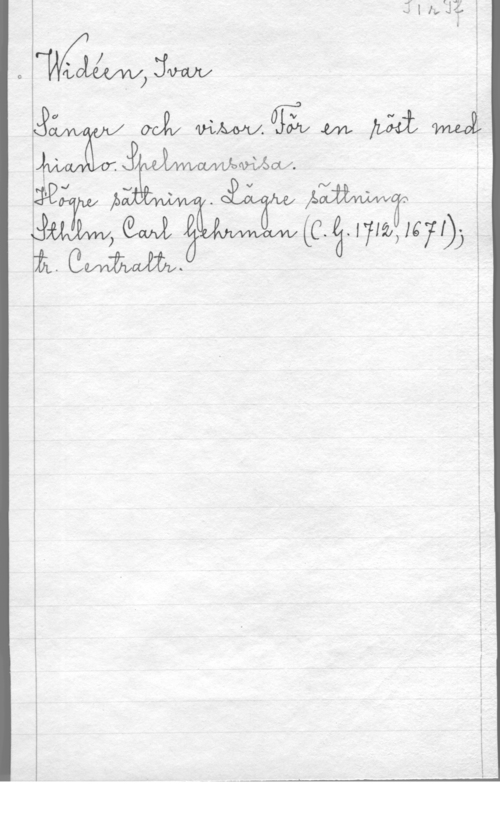 Widéen, Ivar
Sånger och visor. För en röst med
piano. Spelmansvisa.
Högre sättning. Lägre sättning.
Sthlm, Carl Gehrman (C.G. 1712, 1671);
tr. Centraltr.